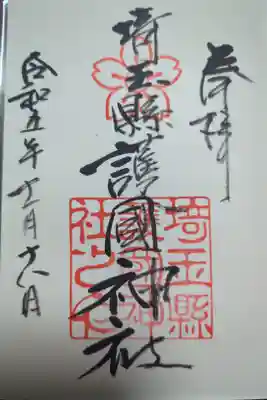 奉拝
埼玉縣護國神社
令和五年十一月十八日
埼玉縣護國神社之印